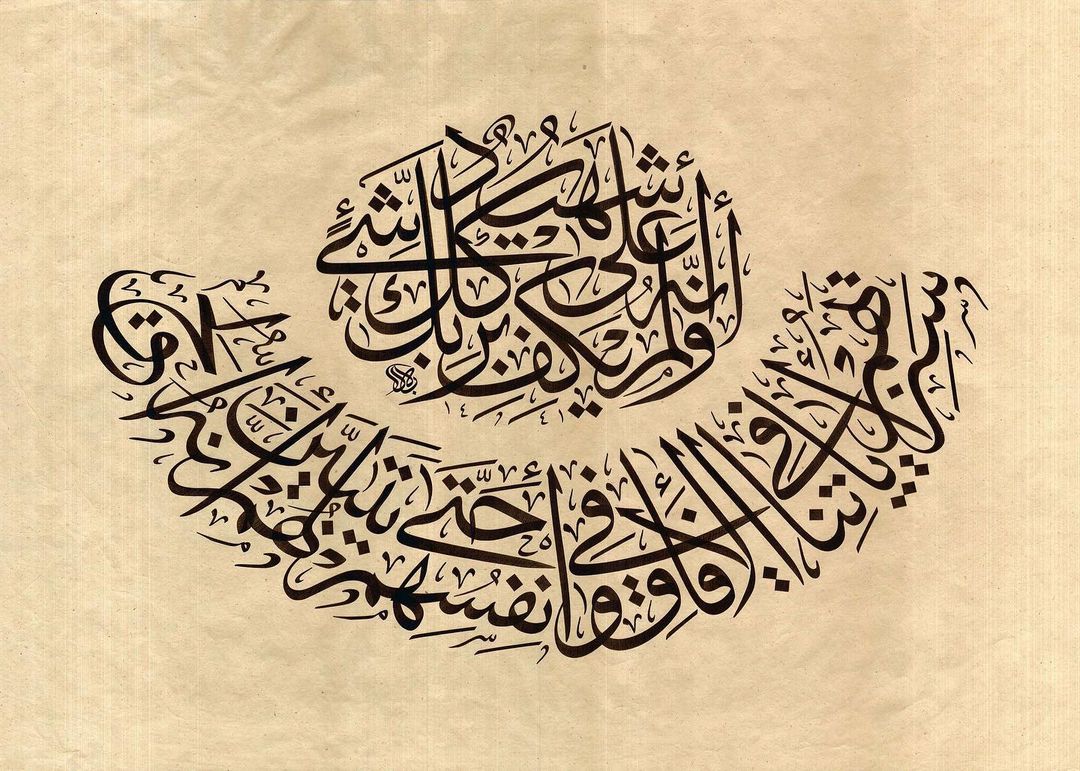 سنريهم آياتنا في الآفاق وفي أنفسهم حتى يتبين لهم أنه الحق
أولم يكف بربك أنه على كل شيء شهيد
١٤٤١